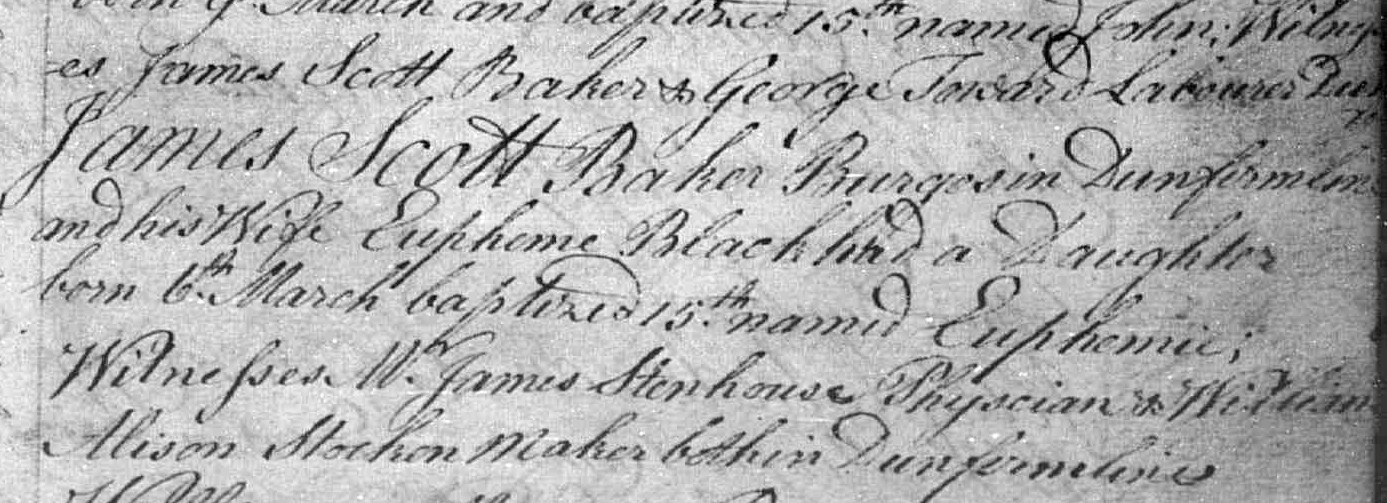 born 9th March and baptized 15th named John; Witness
-es James Scott Baker & George Toward Labourer
James Scott Baker Burges in Dunfermline
and his Wife Eupheme Black had a Daughter
born 6th March baptized 15th named Euphemie;
Witnesses Mr James Stenhouse Physcian & William
Alison Stockon Maker both in Dunfermline